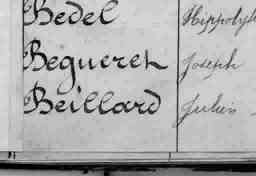 Bedel Hippolyt
Begueret Joseph
Beillard Julien